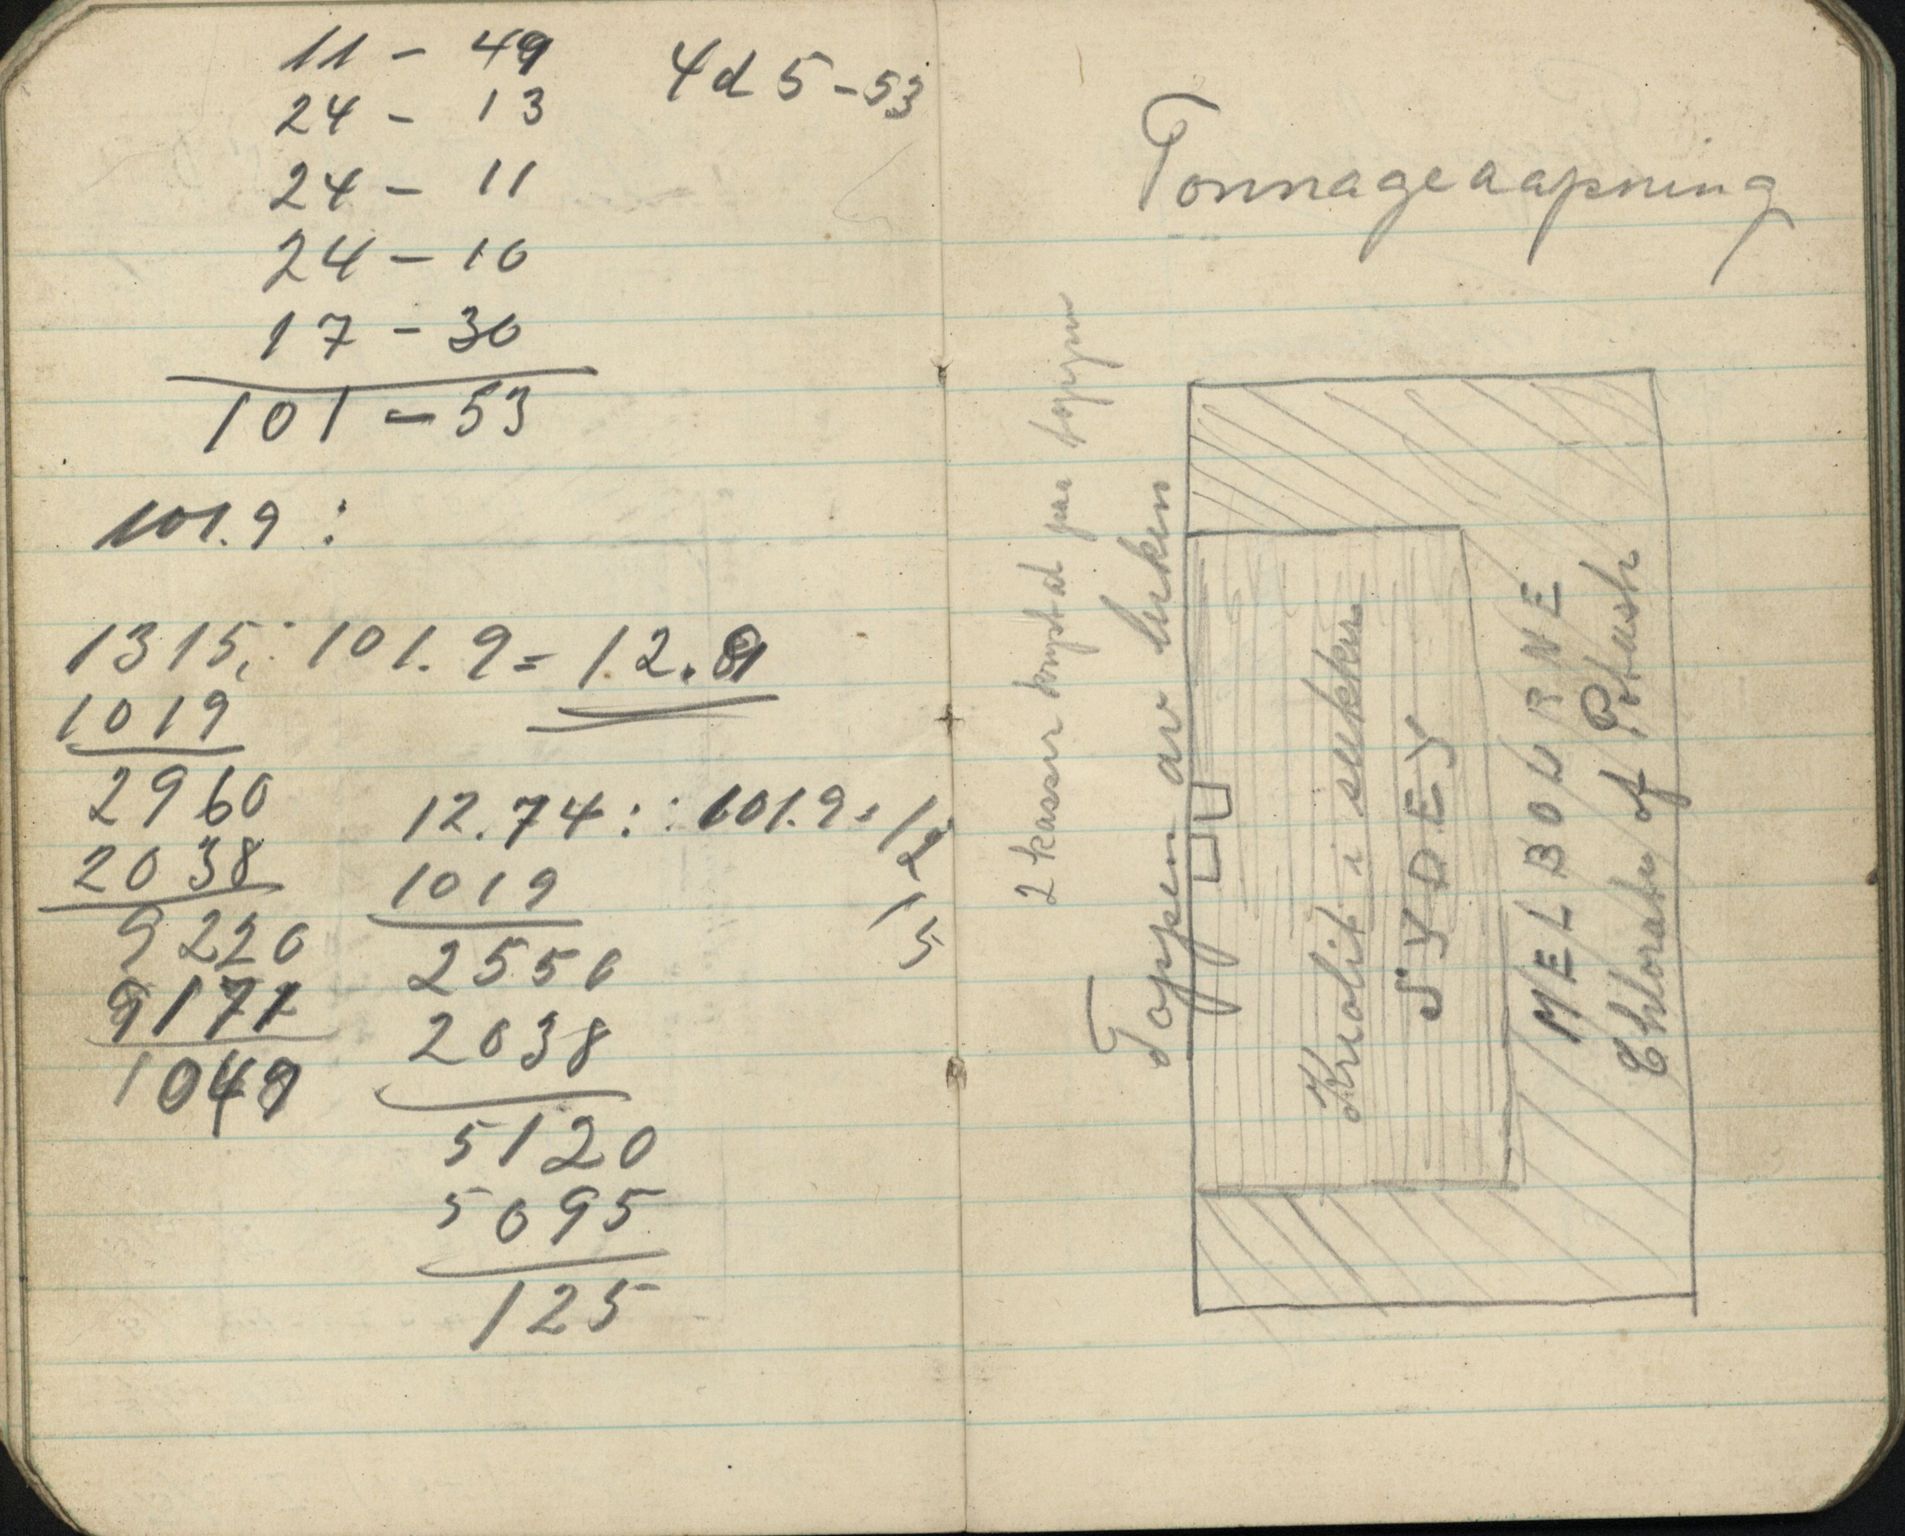 11 - 49
4d 5 - 53
24 - 13
24 - 11
24 - 10
17 - 30
101 - 53
101.9 :
1315 : 101.9 = 12.9
1019
2960
2038
9220
9171
1049
12.74 : : 101.9 = 12
1019
15
2550
2038
5120
5095
125
Tonnageaapning
2 kasser paa toppen
Toppen av luken
Kriolit i sekker
SYDEY
MELBOURNE
Chlorate of Potash